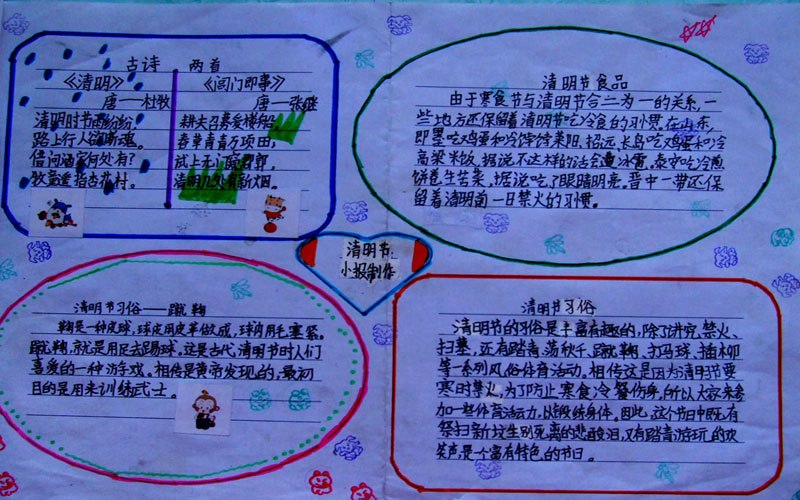 古诗 两首
《清明》
唐一杜牧
清明时节雨纷纷
路上行人欲断魂。
借问酒家何处有?
牧童遥指杏花村。
《阊门即事》
唐一张继
耕夫召募爱楼船,
春草青青万项田;
试上吴门窥郡郭,
清明几处有新烟。
清明节食品
由于寒食节与清明节合二为一的关系,一
些地方还保留着清明节吃冷食的习惯.在山东,
即墨吃鸡蛋和冷饽饽,莱阳、招远、长岛吃鸡蛋和冷
高粱米饭,据说不这样的话会遭冰雹.泰安吃冷煎
饼卷生苦菜,据说吃了眼睛明亮。晋中一带还保
留着清明前一日禁火的习惯。
清明节
小报制作
清明节习俗——蹴鞠
鞠是一种皮球,球皮用皮革做成,球内用毛塞紧。
蹴鞠,就是用足去踢球。这是古代清明节时人们
喜爱的一种游戏。相传是黄帝发现的,最初
目的是用来训练武士。
清明节习俗
清明节的习俗是丰富有趣的,除了讲究禁火、
扫墓,还有踏青、荡秋千、蹴鞠、打马球、插柳
等一系列风俗体育活动。相传这是因为清明节要
寒食禁火,为了防止寒食冷餐伤身,所以大家来参
加一些体育活力,以锻练身体。因此,这个节日中既有
祭扫新坟生别死离的悲酸泪,又有踏青游玩的欢
笑声,是个富有特色的节日。